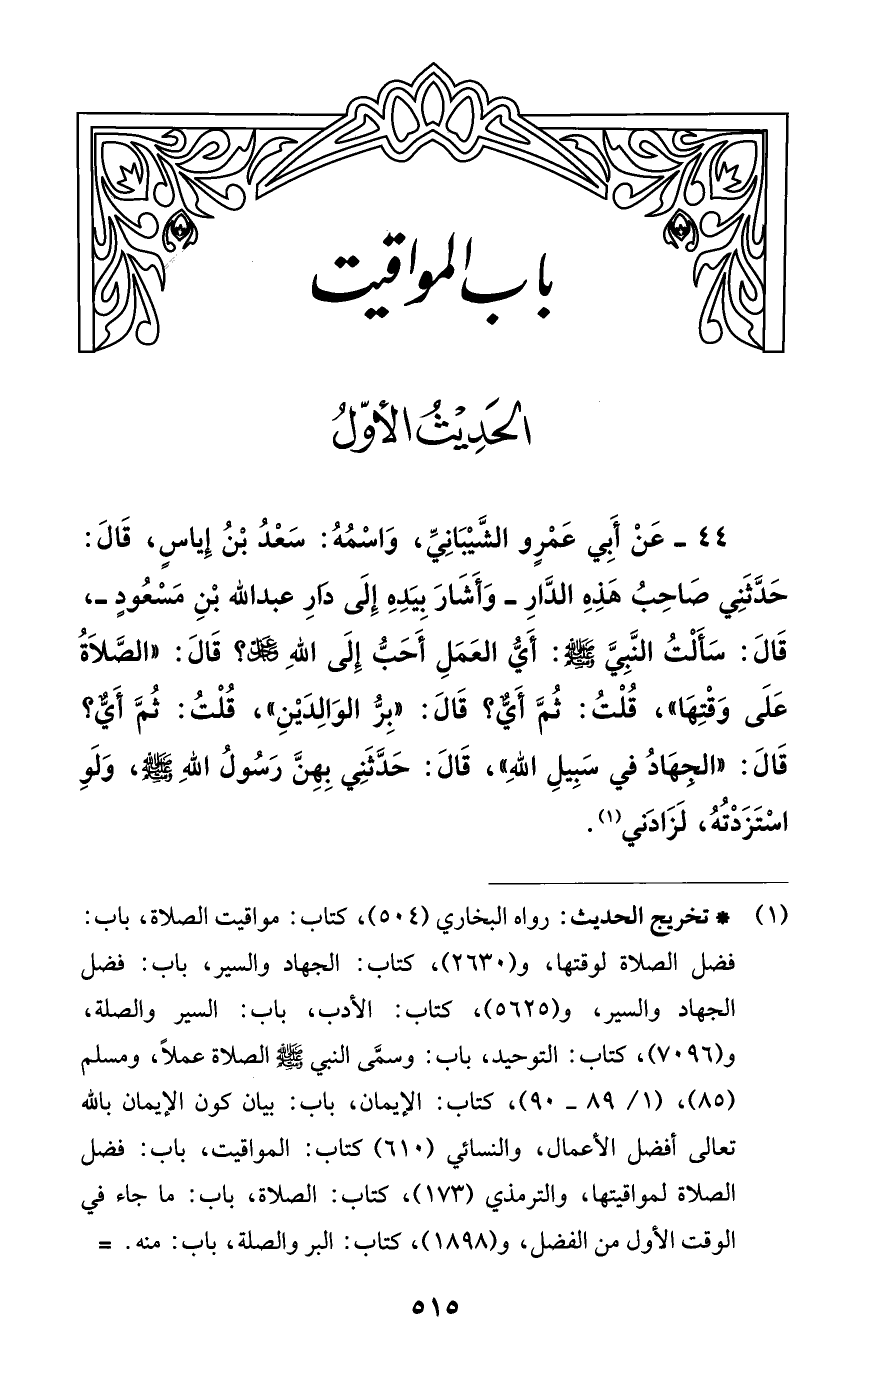 باب المواقيت
الحَدِيْثُ الأَوَّلُ
٤٤ ـ عَنْ أَبِي عَمْرٍو الشَّيْبَانِيِّ، وَاسْمُهُ: سَعْدُ بْنُ إِياسٍ، قَالَ:
حَدَّثَنِي صَاحِبُ هَذِهِ الدَّارِ ـ وَأَشَارَ بِيَدِهِ إِلَى دَارِ عبدالله بْنِ مَسْعُودٍ ـ،
قَالَ: سَأَلْتُ النَّبِيَّ ﷺ: أَيُّ العَمَلِ أَحَبُّ إِلَى اللهِ ﷻ؟ قَالَ: «الصَّلاَةُ
عَلَى وَقْتِهَا»، قُلْتُ: ثُمَّ أَيٌّ؟ قَالَ: «بِرُّ الوَالِدَيْنِ»، قُلْتُ: ثُمَّ أَيٌّ؟
قَالَ: «الجِهَادُ في سَبِيلِ اللهِ»، قَالَ: حَدَّثَنِي بِهِنَّ رَسُولُ اللهِ ﷺ، وَلَوِ
اسْتَزَدْتُهُ، لَزَادَني(١).
(١) * تخريج الحديث: رواه البخاري (٥٠٤)، كتاب: مواقيت الصلاة، باب:
فضل الصلاة لوقتها، و(٢٦٣٠)، كتاب: الجهاد والسير، باب: فضل
الجهاد والسير، و(٥٦٢٥)، كتاب: الأدب، باب: السير والصلة،
و(٧٠٩٦)، كتاب: التوحيد، باب: وسمَّى النبي ﷺ الصلاة عملاً، ومسلم
(٨٥)، (١/ ٨٩ ـ ٩٠)، كتاب: الإيمان، باب: بيان كون الإيمان بالله
تعالى أفضل الأعمال، والنسائي (٦١٠) كتاب: المواقيت، باب: فضل
الصلاة لمواقيتها، والترمذي (١٧٣)، كتاب: الصلاة، باب: ما جاء في
الوقت الأول من الفضل، و(١٨٩٨)، كتاب: البر والصلة، باب: منه. =
٥١٥